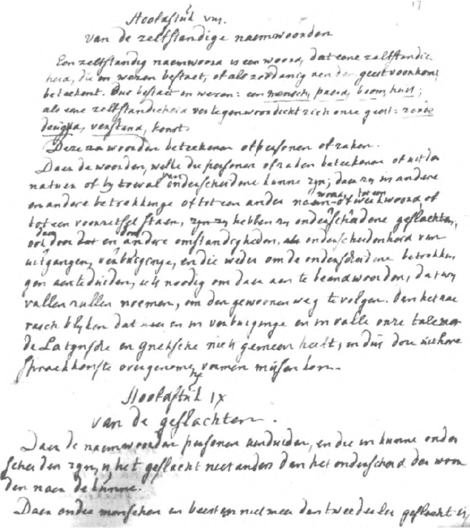 Hooftstuk VIII.
van de zelfstandige naemwoorden
Een zelfstandig naemwoord is een woord, dat eene zelfstandig-
heid, die in wezen bestaet, of als zoodanig aen den geest voorkomt
betekent. Dus bestaet in wezen: een mensch, paerd, boom, huis;
als eene zelfstandigheid vertegenwoordigt zich onze geest:
deugd, verstand, konst.
Deze naemwoorden betekenen of personen of zaken.
Daer de woorden, welke die personen of zaken betekenen of uit der
natuer of by toeval van onderscheidene kunne zyn; daer zy in andere
en andere betrekkinge of tot een ander naem- of werkwoord of
tot een voorzetsel staen, zyn zy hebben zy onderscheidene geslachten,
ook door dat en door andere omstandigheden, als onderscheidenheid van
uitgangen, verbuiginge, en die weder om de onderscheidene betrekkin-
gen aen te duiden, is 't noodig om daer aen te beandwoorden, dat wy
vallen zullen noemen, om den gewoonen weg te volgen. Den het zal
rasch blyken dat men en in verbuiginge en in valle onze tale met
de Latynsche en Grieksche niets gemeen heeft, en dus door
spraekkonste overgenomen namen missen kon.
Hooftstuk IX
van de geslachten.
Daer de naemwoorden personen aenduiden, en die in kunne onder-
scheiden zyn, is het geslacht niets anders dan het onderscheid der woor-
den naer de kunne.
Daer onder menschen en beesten niet meer dan tweederlei geslacht is,